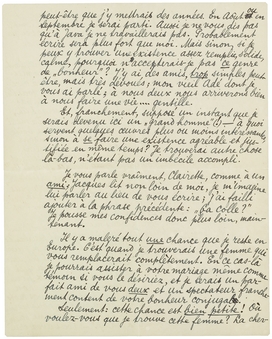 peut-être que j'y mettrais des années. En Août ou
septembre je serai parti. Aussi je ne vous dis pas
qu'à Java je ne travaillerais pas. Probablement
écrire sera plus fort que moi. Mais sinon, si je
peux y trouver une existence assez remplie, solide,
calme, pourquoi n'accepterais-je pas ce genre
de „bonheur"? J'y ai des amis, trop simples peut-
être, mais très dévoués; mon vieil Adé dont je
vous ai parlé; à nous deux nous arriverons bien
à nous faire une vie.... gentille.
Et, franchement, supposé un instant que je
serais devenu ici un „grand homme" (!) — à quoi
servent quelques œuvres plus ou moins
sinon à se faire une existence agréable et jus-
tifiée en même temps? Je trouverai autre chose
là-bas, n'étant pas un imbécile accompli.
Je vous parle vraiment, Clairette, comme à un
ami; Jacques est non loin de moi, je m'imagine
lui parler au lieu de vous écrire; j'ai failli
ajouter à la phrase précédente: „Ça colle?"
J'y pousse mes confidences donc plus loin, main-
tenant.
Il y a malgré tout une chance que je reste en
Europe. C'est quand je trouverais une femme qui
vous remplacerait complètement. En ce cas-là
je pourrais assister à votre mariage même comme
témoin si vous le désirez, et je serais un par-
fait ami de vous deux et un spectateur franche-
ment content de votre bonheur conjugal.
Seulement: cette chance est bien petite! Où
voulez-vous que je trouve cette femme? La cher-